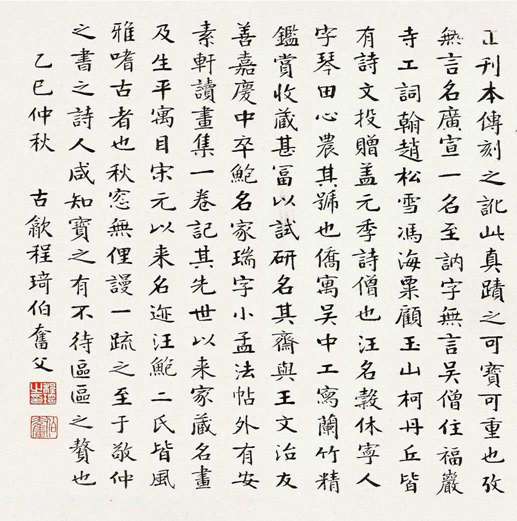 正刊本傳刻之訛此真蹟之可寶可重也攷
無言名廣宣一名至訥字無言吳僧住福巖
寺工詞翰趙松雪馮海粟顧玉山柯丹丘皆
有詩文投贈蓋元季詩僧也汪名瑴休寧人
字琴田心農其號也僑寓吳中工寫蘭竹精
鑑賞收藏甚富以試研名其齋與王文治友
善嘉慶中卒鮑名家瑞字小孟法帖外有安
素軒讀畫集一卷記其先世以来家藏名畫
及生平寓目宋元以来名迹汪鮑二氏皆風
雅嗜古者也秋窓無俚謾一疏之至于敬仲
之書之詩人咸知寶之有不待區區之贅也
乙巳仲秋 古歙程琦伯奮父